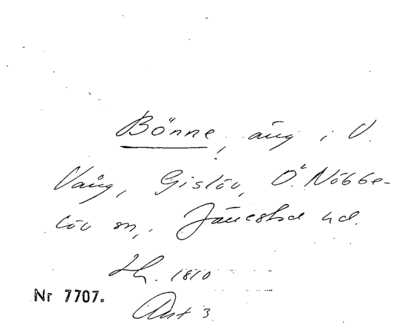 Bönne, äng i V.
Vång, Gislöv, Ö. Nöbbe-
löv sn, Järrestad hd.
Sk. 1810
Nr 7707.
Akt 3